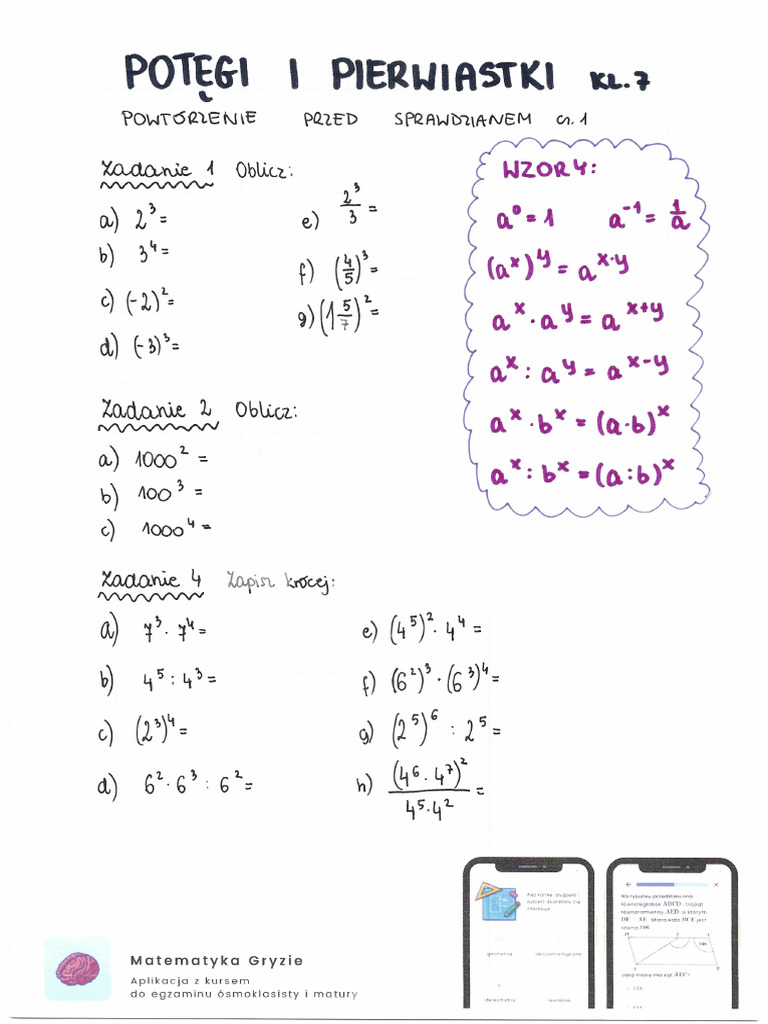 POTĘGI I PIERWIASTKI KL.7
POWTÓRZENIE PRZED SPRAWDZIANEM cz.1
Zadanie 1 Oblicz:
a) 2³=
b) 3⁴=
c) (-2)²=
d) (-3)³=
e) 2³/3 =
f) (4/5)³=
g) (1 5/7)²=
WZORY:
a⁰=1 a⁻¹=1/a
(aˣ)ʸ=aˣ·ʸ
aˣ·aʸ=aˣ⁺ʸ
aˣ:aʸ=aˣ⁻ʸ
aˣ·bˣ=(a·b)ˣ
aˣ:bˣ=(a:b)ˣ
Zadanie 2 Oblicz:
a) 1000² =
b) 100³ =
c) 1000⁴=
Zadanie 4 Zapisz krócej:
a) 7³·7⁴=
b) 4⁵:4³=
c) (2³)⁴=
d) 6²·6³:6²=
e) (4⁵)²·4⁴=
f) (6²)³·(6³)⁴=
g) (2⁵)⁶:2⁵=
h) (4⁶·4⁷)²/4⁵·4² =
Matematyka Gryzie
Aplikacja z kursem
do egzaminu ósmoklasisty i matury
geometria